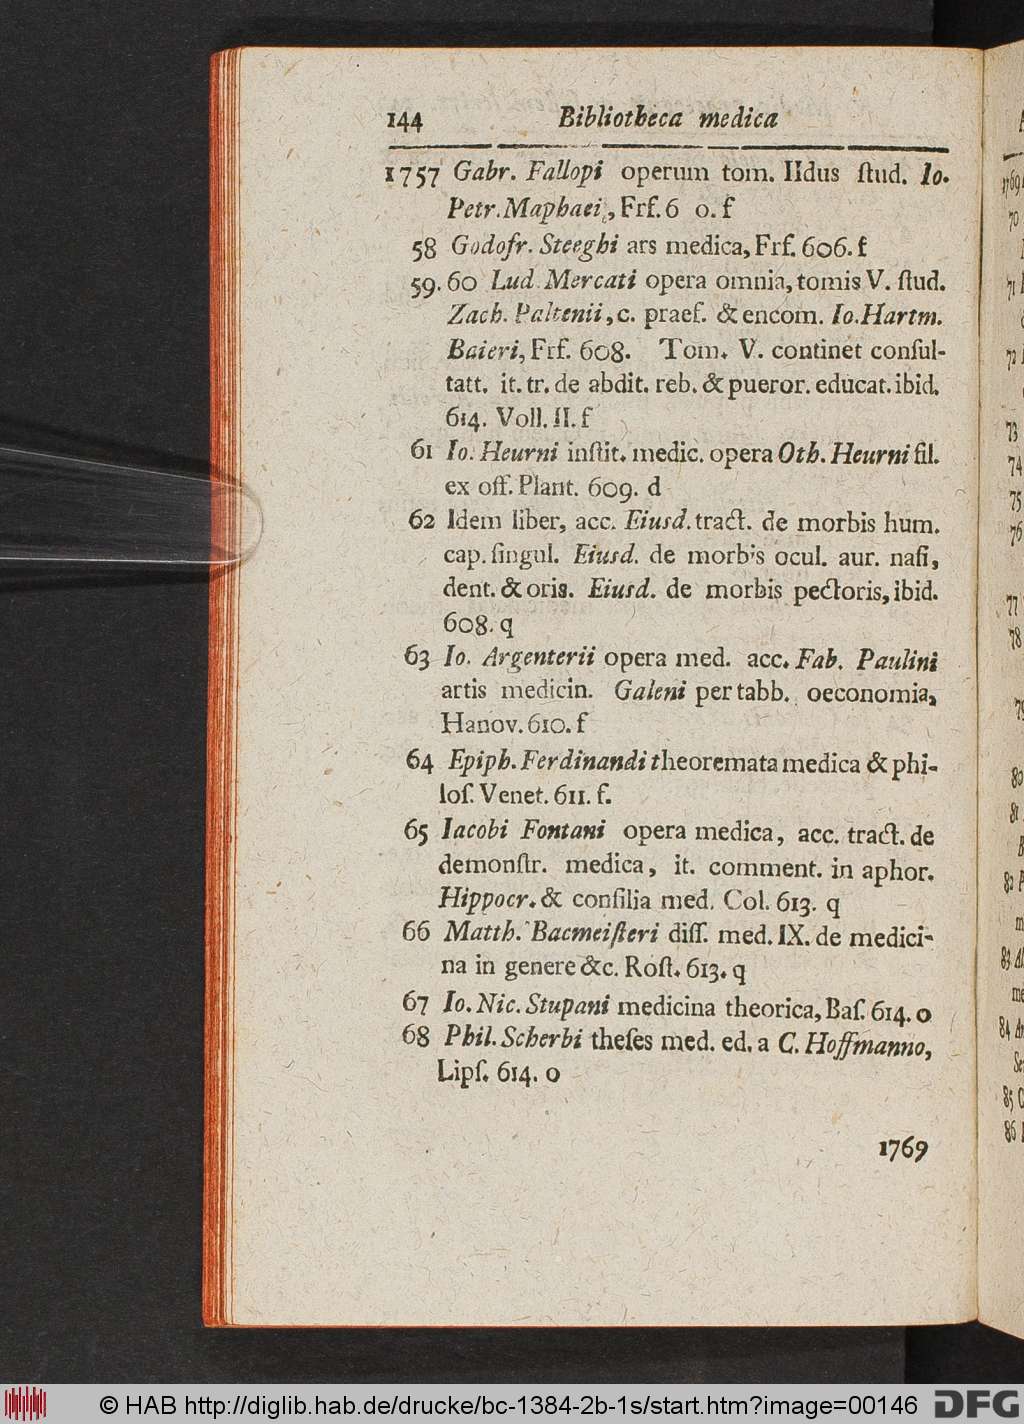 144 Bibliotheca medica
1757 Gabr. Fallopi operum tom. IIdus ſtud. Io.
Petr. Maphaei, Frf. 6 0. f
58 Godofr. Steeghi ars medica, Frf. 606. f
59. 60 Lud. Mercati opera omnia, tomis V. ſtud.
Zach. Paltenii, c. praef. & encom. Io. Hartm.
Baieri, Frf. 608. Tom. V. continet conſul-
tatt. it. tr. de abdit. reb. & pueror. educat. ibid.
614. Voll. II. f
61 Io. Heurni inſtit. medic. opera Oth. Heurni fil.
ex off. Plant. 609. d
62 Idem liber, acc. Eiusd. tract. de morbis hum.
cap. ſingul. Eiusd. de morbis ocul. aur. naſi,
dent. & oris. Eiusd. de morbis pectoris, ibid.
608. q
63 Io. Argenterii opera med. acc. Fab. Paulini
artis medicin. Galeni per tabb. oeconomia,
Hanov. 610. f
64 Epiph. Ferdinandi theoremata medica & phi-
loſ. Venet. 611. f.
65 Iacobi Fontani opera medica, acc. tract. de
demonſtr. medica, it. comment. in aphor.
Hippocr. & conſilia med. Col. 613. q
66 Matth. Bacmeiſteri diſſ. med. IX. de medici-
na in genere &c. Roſt. 613. q
67 Io. Nic. Stupani medicina theorica, Baſ. 614. o
68 Phil. Scherbi theſes med. ed. a C. Hoffmanno,
Lipſ. 614. o
1769
© HAB http://diglib.hab.de/drucke/bc-1384-2b-1s/start.htm?image=00146
DFG